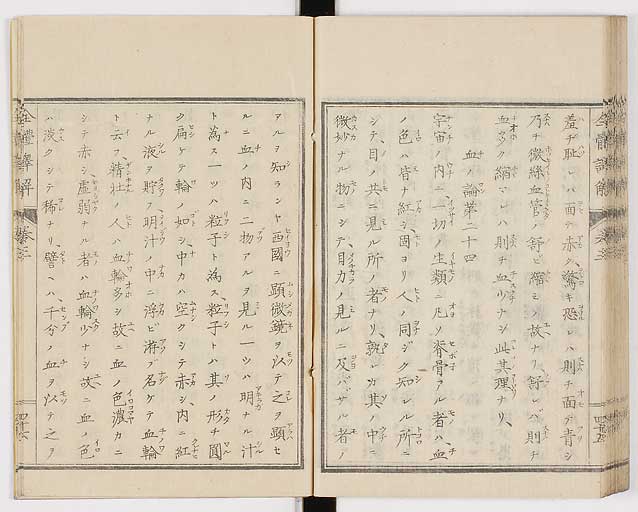 羞ヂ耻レバ面テ赤ク、驚キ恐レハ則チ面テ青シ
乃チ微絲血管ノ舒ビ縮ミノ故ナリ、舒レバ則チ
血多ク縮マレハ則チ血少ナシ此其理ナリ、
血ノ論第二十四
宇宙ノ内ニ一切ノ生類ニ凡ソ脊骨アル者ハ、血
ノ色ハ皆ナ紅シ、固ヨリ人ノ同ジク知レル所ニ
シテ、目ノ共ニ見ル所ノ者ナリ、孰レカ其ノ中ニ
微妙ナル物ニシテ、目力ノ見ルニ及バザル者ノ
アルヲ知ラント西國ニ顕微鏡ヲ以テ之ヲ顕セ
ルニ血ノ内ニ二物アルヲ見ル一ツハ明ナル汁
ト為ス一ツハ粒子ト為ス、粒子トハ其ノ形チ圓
ク扁ケテ輪ノ如シ、中カハ空クシテ赤シ、内ニ紅
ナル液ヲ貯フ明汁ノ中ニ浮ビ游ブ名ケテ血輪
ト云フ精壮ノ人ハ血輪多シ故ニ血ノ色濃カニ
シテ赤シ、虚弱ナル者ハ血輪少ナシ故ニ血ノ色
ハ淡クシテ稀ナリ、譬ヘハ、千分ノ血ヲ以テ之ヲ